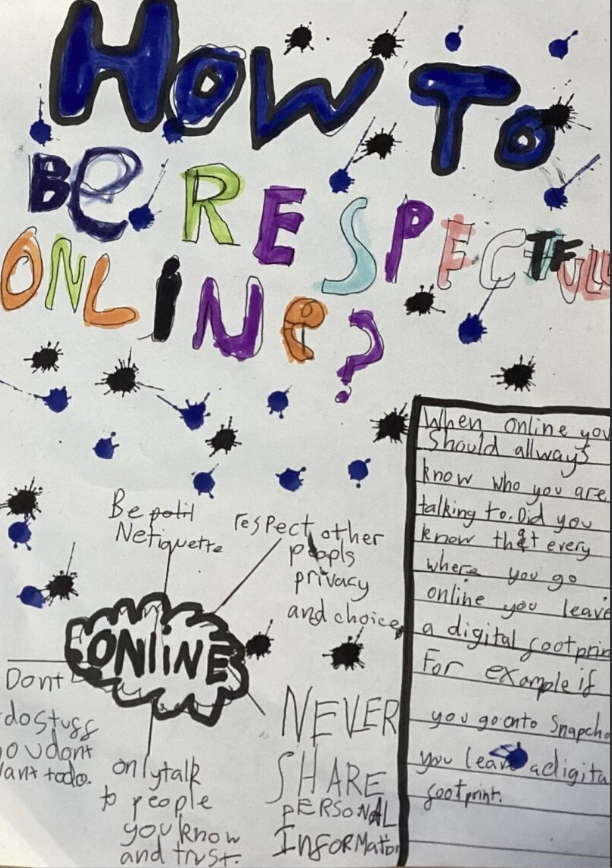 HOW TO
BE RESPECTFULL
ONLINE?
Be potil
Netiquette
respect other
peopls
privacy
and choice
ONLINE
Dont
do Stuff
you dont
want todo.
only talk
to people
you know
and trust.
NEVER
SHARE
PERSONAL
Information
When online you
Should allways
know who you are
talking to. Did you
know that every
where you go
online you leave
a digital footprin
For example if
you go onto Snapcha
you leave a digita
footprint.